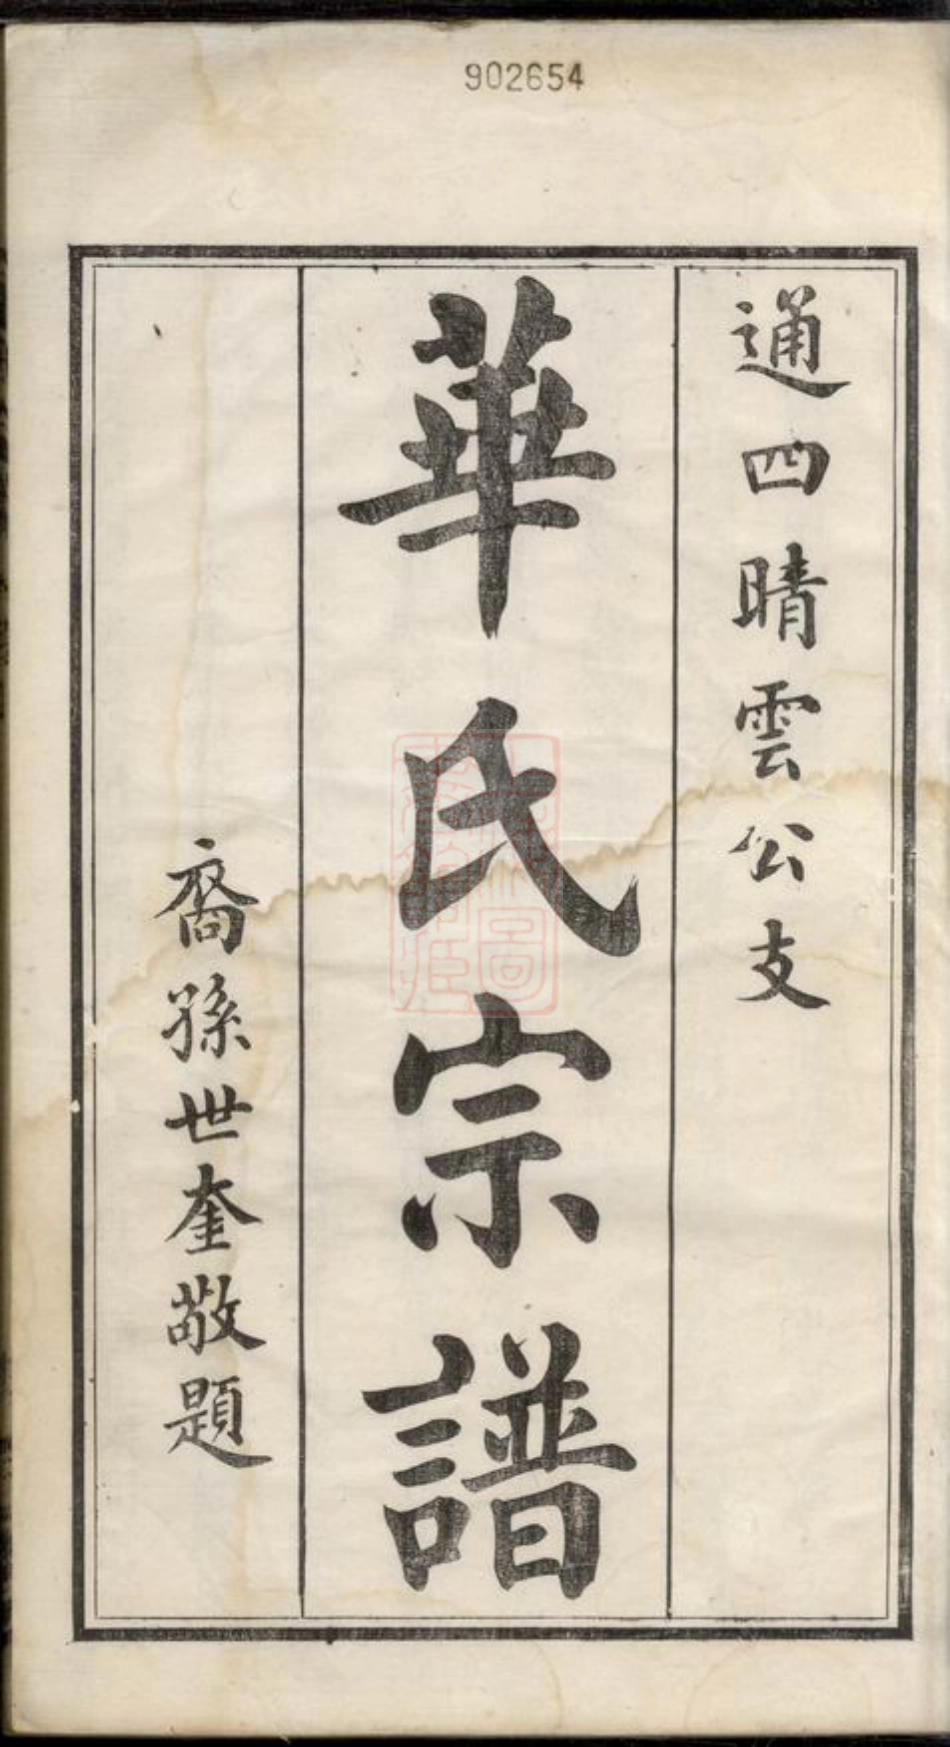 902654
通四晴雲公支
華氏宗譜
裔孫世奎敬題